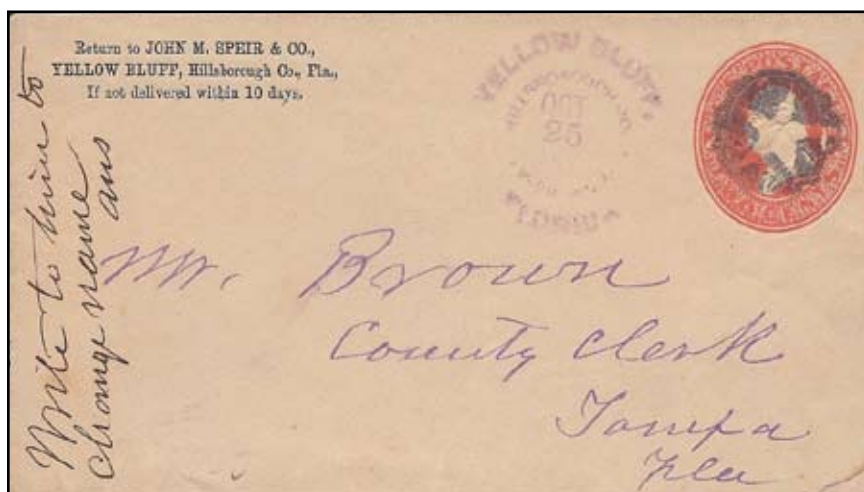 Return to JOHN M. SPEIR & CO.,
YELLOW BLUFF, Hillsborough Co., Fla.,
If not delivered within 10 days.
YELLOW BLUFF,
HILLSBOROUGH CO.
OCT
25
FLORIDA
POSTAGE
Write to him to
change name
ans
Mr. Brown
County Clerk
Tampa
Fla